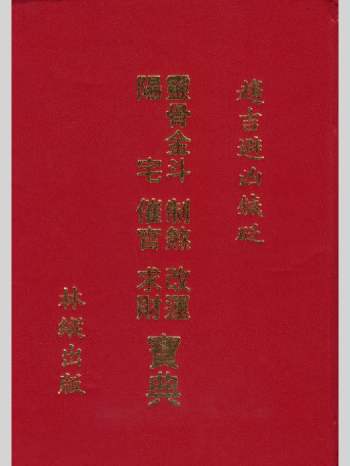 趨吉避凶儀
靈骨金斗 制煞 改運
陽宅 催官 求財
寶典
林縱出版